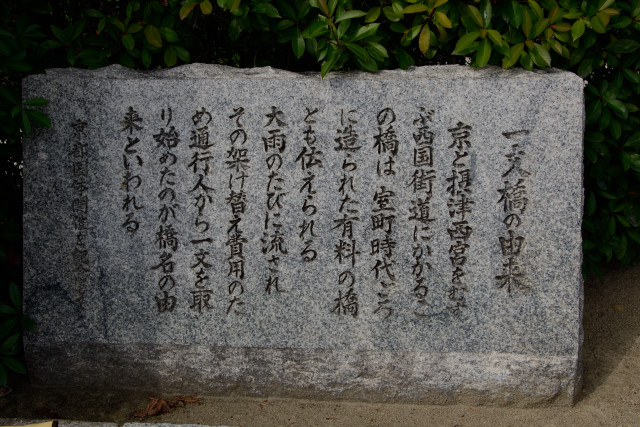 一文橋の由来
京と摂津西宮をむす
ぶ西国街道にかかるこ
の橋は 室町時代ごろ
に造られた有料の橋
とも伝えられる
大雨のたびに流され
その架け替え費用のた
め通行人から一文を取
り始めたのが橋名の由
来といわれる